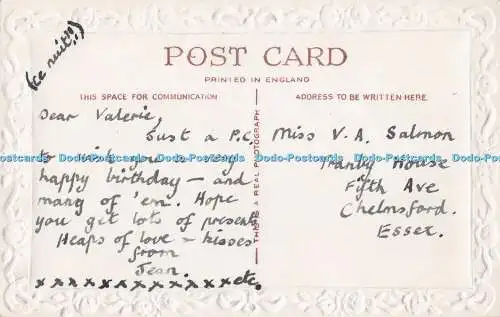 POST CARD
PRINTED IN ENGLAND
THIS SPACE FOR COMMUNICATION
ADDRESS TO BE WRITTEN HERE
Dear Valerie,
Just a P.C.
to wish you a very
happy birthday – and
many of 'em. Hope
you get lots of presents
Heaps of love – kisses
from
Jean.
x x x x x x x x x x x x etc.
THIS IS A REAL PHOTOGRAPH
Miss V. A. Salmon
Tranby House
Fifth Ave
Chelmsford.
Essex.
Dodo-Postcards Dodo-Postcards Dodo-Postcards Dodo-Postcards